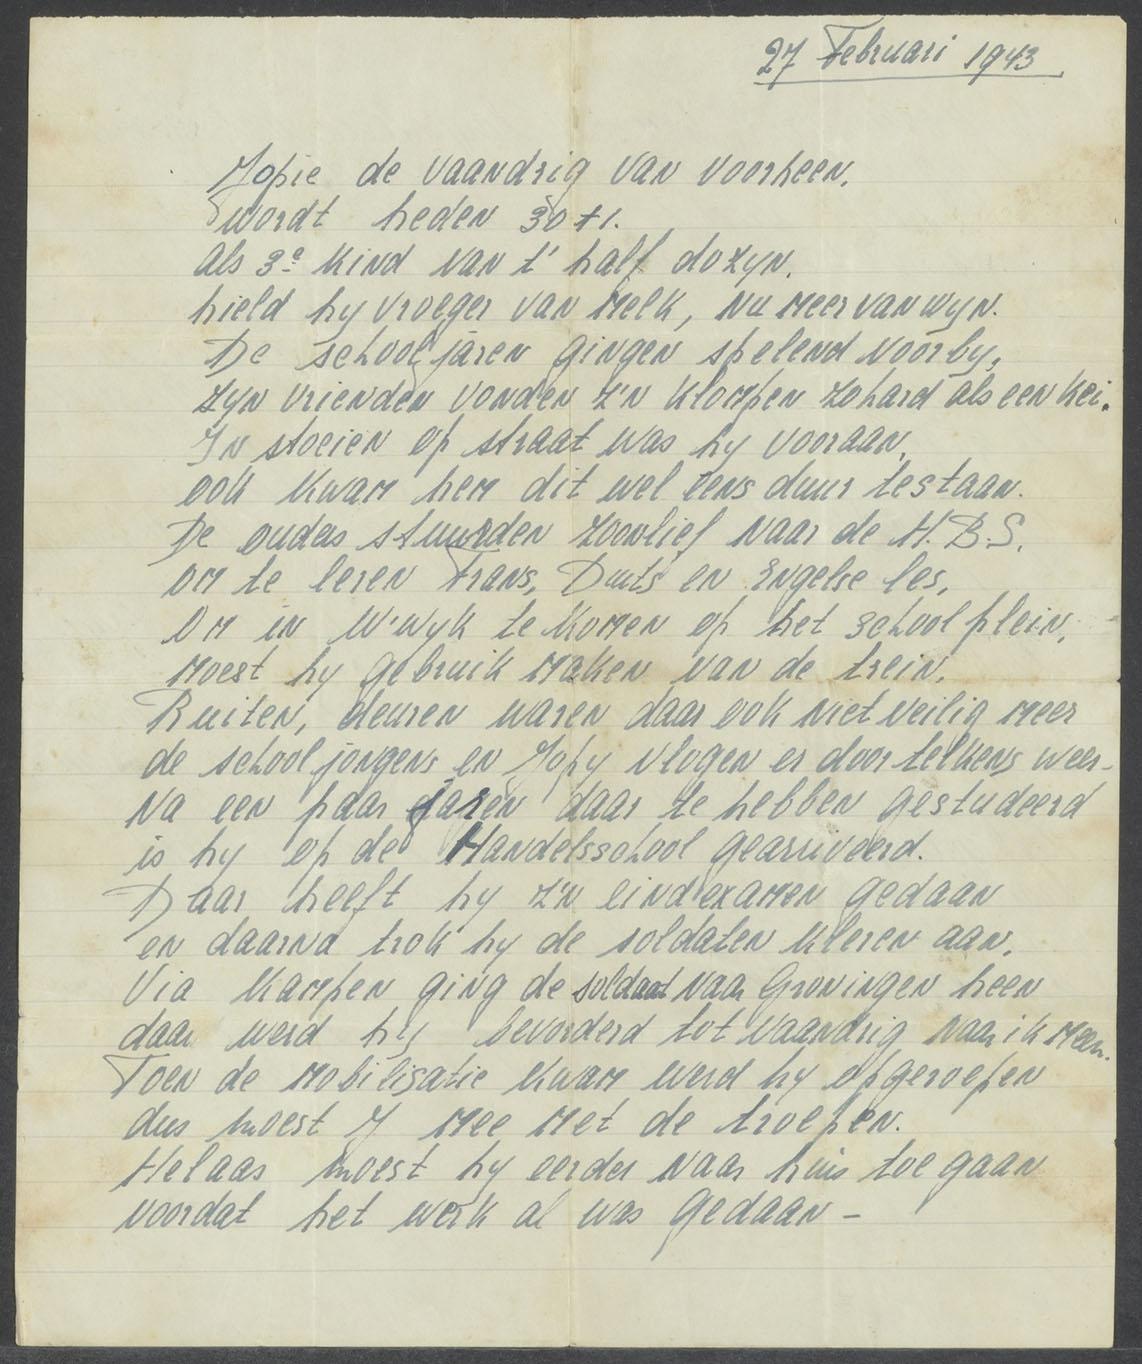 27 Februari 1943
Jopie de vaandrig van voorheen.
wordt heden 30 + 1.
Als 3e kind van t' half dozyn.
hield hy vroeger van melk, nu meer van wyn.
De schooljaren gingen spelend voorby,
zyn vrienden vonden z'n klompen zo hard als een kei.
In stoeien op straat was hy vooraan,
ook kwam hem dit wel eens duur te staan.
De ouders stuurden zoonlief naar de H.B.S.
om te leren Frans, Duits en Engelse les,
Om in W'wyk te komen op het schoolplein,
moest hy gebruik maken van de trein.
Ruiten, deuren waren daar ook niet veilig meer
de schooljongens en Jopy vlogen er door telkens weer-
Na een paar jaren daar te hebben gestudeerd
is hy op de Handelsschool gearriveerd.
Daar heeft hy z'n eindexamen gedaan
en daarna trok hy de soldaten kleren aan.
Via Kampen ging de soldaat naar Groningen heen
daar werd hy bevorderd tot vaandrig naar ik meen.
Toen de mobilisatie kwam werd hy opgeroepen
dus moest J mee met de troepen.
Helaas moest hy eerder naar huis toe gaan
voordat het werk al was gedaan -